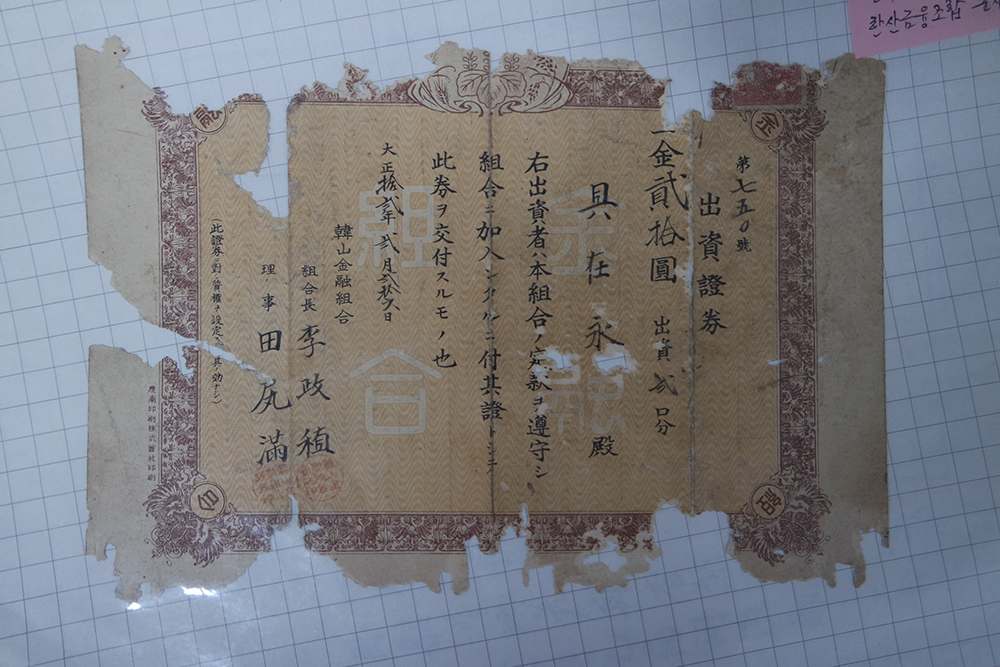 한산금융조합
金
融
組
合
第七五〇號
出資證券
一金貳拾圓 出資貳口分
具在永殿
右出資者ハ本組合ノ定款ヲ遵守シ
組合ニ加入シタルニ付其證トシテ
此券ヲ交付スルモノ也
大正拾貳年貳月貳拾六日
韓山金融組合
組合長 李政稙
理事 田尻滿
(此證券ニ對シ質權ヲ設定 其 効ナシ)
印刷株式會社印刷
金融
組合